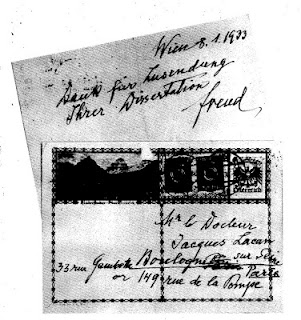 Wien 8.1.1933
Dank für Zusendung
Ihrer Dissertation
Freud
Mr le Docteur
Jacques Lacan
33 rue Gambetta Boulogne sur Seine
or 149 rue de la Pompe
Paris